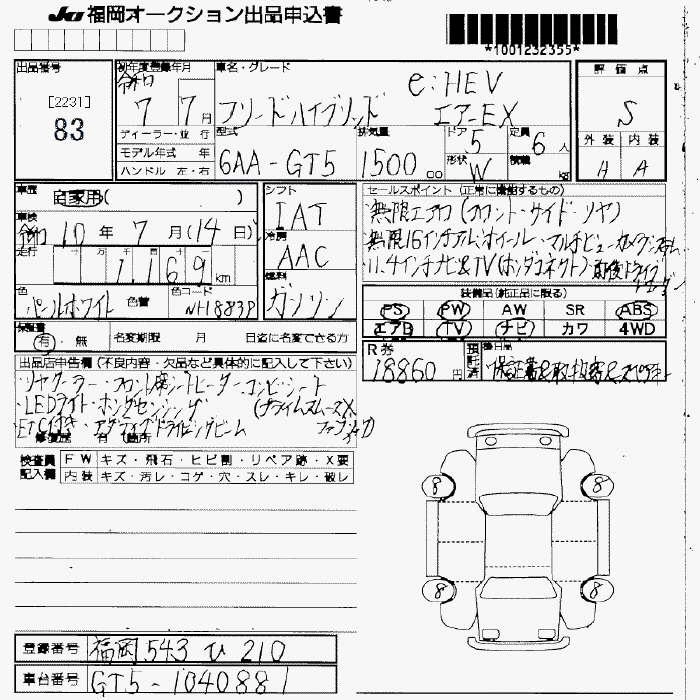 JU 福岡オークション出品申込書
*1001232355*
出品番号
[2231]
83
初年度登録年月
令和
7 7月
車名・グレード
e:HEV
フリードハイブリッド エアーEX
評価点
S
外装 内装
H A
ディーラー・並行
モデル年式 年
ハンドル 左・右
型式
6AA-GT5
排気量
1500 cc
ドア
5
形状
W
定員
6人
積載
kg
車歴
自家用( )
車検
令和10年7月(14日)
走行
1,169km
色
パールホワイト
色替
色コード
NH883P
シフト
IAT
冷房
AAC
燃料
ガソリン
セールスポイント(正常に機能するもの)
・無限エアロ(フロント・サイド・リヤ)
・無限16インチアルミホイール・マルチビューカメラ
・11.4インチナビ&TV(ホンダコネクト)前後ドライブレコーダー
装備品(純正品に限る)
PS PW AW SR ABS
エアB TV ナビ カワ 4WD
保証書
有・無
名変期限 月 日迄に名変できる方
R券
18860円
預託済
後日品
保証書&取扱書&
出品店申告欄(不良内容・欠品など具体的に記入して下さい)
・リヤクーラー・フロント席シートヒーター・コンビシート
・LEDライト・ホンダセンシング (プライムスムースX
・ETC付き・アダプティブドライビングビーム ファブリック)
修復歴 有 (箇所
検査員記入欄
FW キズ・飛石・ヒビ割・リペア跡・X要
内装 キズ・汚レ・コゲ・穴・スレ・キレ・破レ
8 8
8 8
登録番号 福岡 543 ひ 210
車台番号 GT5-1040881